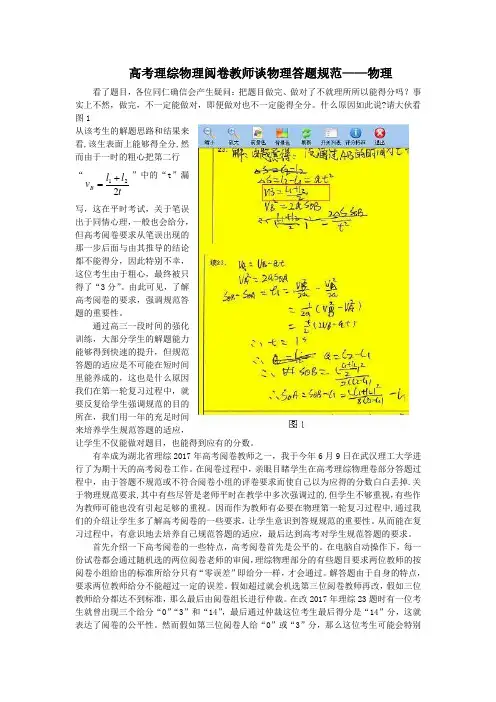 高考理综物理阅卷教师谈物理答题规范——物理
看了题目，各位同仁确信会产生疑问：把题目做完、做对了不就理所所以能得分吗？事
实上不然，做完，不一定能做对，即便做对也不一定能得全分。什么原因如此说?请大伙看
图1
从该考生的解题思路和结果来
看,该生表面上能够得全分,然
而由于一时的粗心把第二行
“ v_B = (l₁+l₂)/2t ”中的“t”漏
写，这在平时考试，关于笔误
出于同情心理,一般也会给分，
但高考阅卷要求从笔误出现的
那一步后面与由其推导的结论
都不能得分，因此特别不幸，
这位考生由于粗心，最终被只
得了“3分”。由此可见，了解
高考阅卷的要求，强调规范答
题的重要性。
通过高三一段时间的强化
训练，大部分学生的解题能力
能够得到快速的提升，但规范
答题的适应是不可能在短时间
里能养成的，这也是什么原因
我们在第一轮复习过程中，就
要反复给学生强调规范的目的
所在，我们用一年的充足时间
来培养学生规范答题的适应，
让学生不仅能做对题目，也能得到应有的分数。
缩小 放大 背景色 前景色 刷新 开关列表 评分档案 退出
VB = l₁+l₂/2
VB² = 2a SOB
VA = VB - at
VA² = 2a SOA
∴ t = 1s
a = l₂ - l₁
图1
有幸成为湖北省理综2017年高考阅卷教师之一，我于今年6月9日在武汉理工大学进
行了为期十天的高考阅卷工作。在阅卷过程中，亲眼目睹学生在高考理综物理卷部分答题过
程中，由于答题不规范或不符合阅卷小组的评卷要求而使自己以为应得的分数白白丢掉.关
于物理规范要求,其中有些尽管是老师平时在教学中多次强调过的,但学生不够重视,有些作
为教师可能也没有引起足够的重视。因而作为教师有必要在物理第一轮复习过程中,通过我
们的介绍让学生多了解高考阅卷的一些要求,让学生意识到答规规范的重要性。从而能在复
习过程中，有意识地去培养自己规范答题的适应，最后达到高考对学生规范答题的要求。
首先介绍一下高考阅卷的一些特点，高考阅卷首先是公平的。在电脑自动操作下，每一
份试卷都会通过随机选的两位阅卷老师的审阅,理综物理部分的有些题目要求两位教师的按
阅卷小组给出的标准所给分只有“零误差”即给分一样，才会通过。解答题由于自身的特点，
要求两位教师给分不能超过一定的误差。假如超过就会机选第三位阅卷教师再改，假如三位
教师给分都达不到标准，那么最后由阅卷组长进行仲裁。在改2017年理综23题时有一位考
生就曾出现三个给分“0”“3”和“14”，最后通过仲裁这位考生最后得分是“14”分，这就
表达了阅卷的公平性。然而假如第三位阅卷人给“0”或“3”分，那么这位考生可能会特别